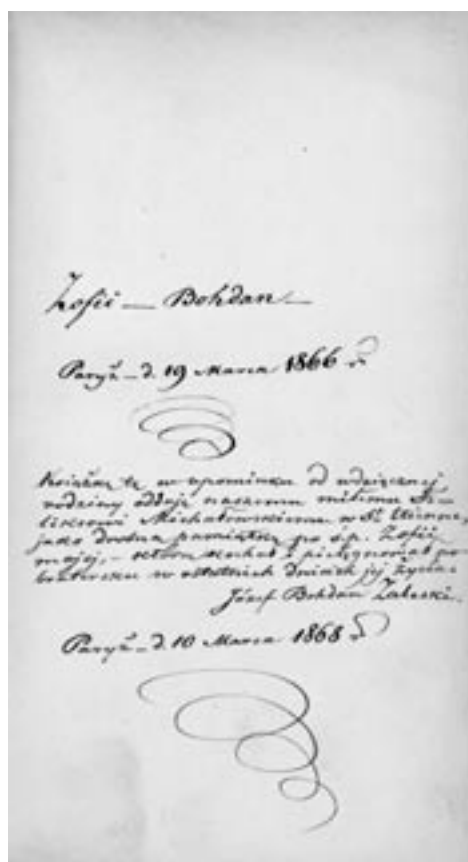 Zofii — Bohdan —
Paryż — d. 19 Marca 1866 r.
Książkę tę w upominku od wdzięcznej
rodziny oddaję naszemu miłemu Fe-
liksowi Michałowskiemu w St. Etienne,
jako drobną pamiątkę po ś.p. Zofii
mojej, — którą kochał i pielęgnował po
bratersku w ostatnich dniach jej życia.
Józef Bohdan Zaleski.
Paryż — d. 10 Marca 1868 r.